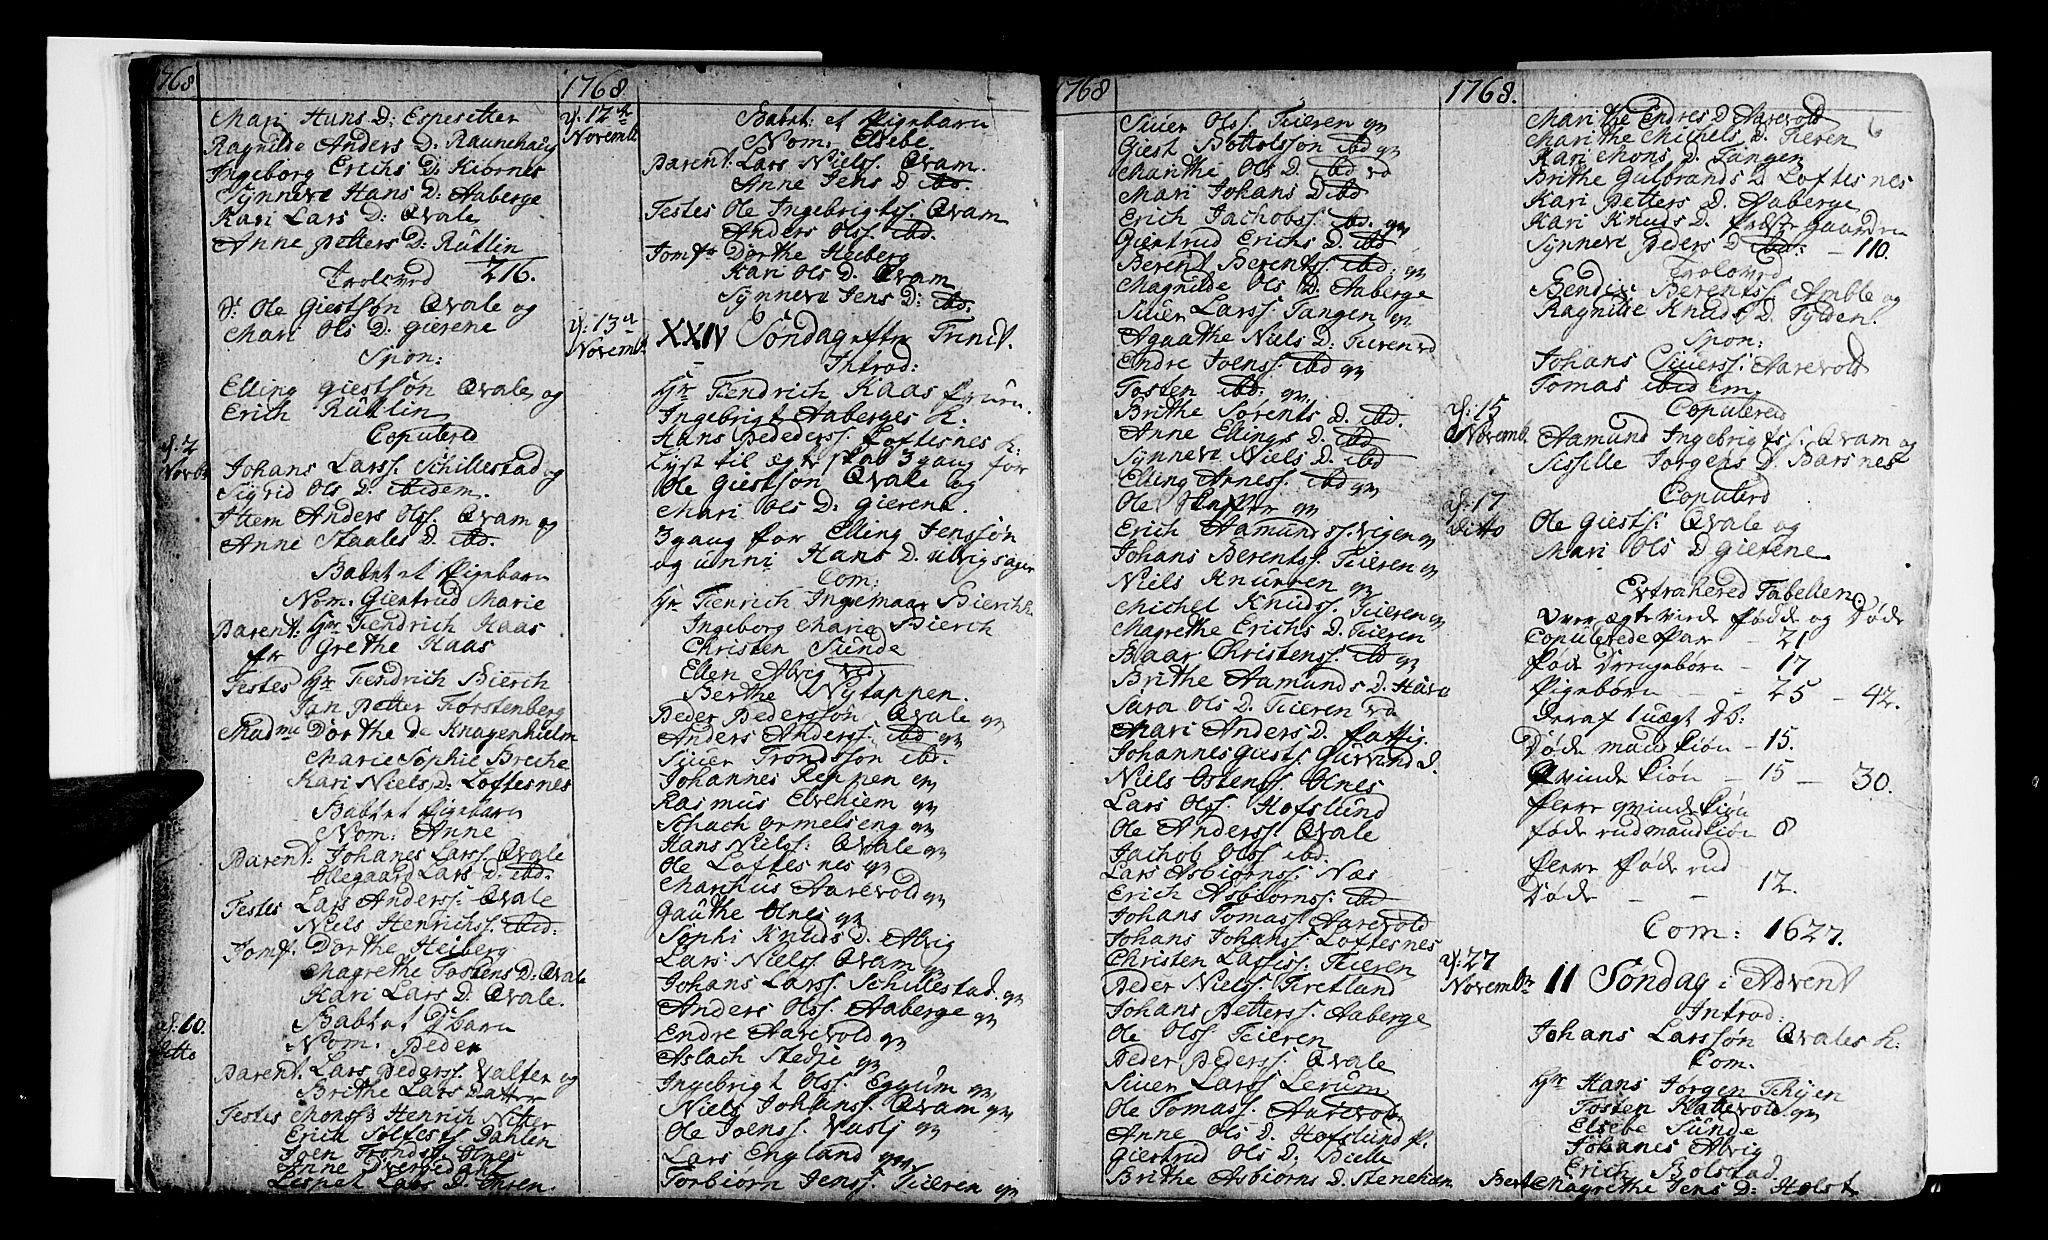 1768
Mari Hans D: Espesetter
Ragnilde Anders D. Raunehaug
Ingeborg Erichs D: Kiørnes
Synneve Hans D: Aaberge
Kari Lars D: Qvale
Anne Petters D: Rutlin
Trolovd 216.
Ole Giestsøn Qvale og
Mari Ols D. Gierene
Spon:
Elling Giestsøn Qvale og
Erich Rutlin
Copulered
d: 2
Novbr
Johans Larss. Schillestad og
Sigrid Ols D. ibidem.
Item Anders Olss. Qvam og
Anne Staales D. ibd.
Babt et Pigebarn
Nom: Giertrud Marie
Parent: Hr Fendrich Haas
fr Grethe Haas
Testes Hr Fendrich Bierch
Jan Petter Forstenberg
Madme Dorthe de Knagenhielm
Marie Sophie Breche
Kari Niels D. Loftesnes
Babt et Pigebarn
Nom: Anne
Parent: Johanes Larss. Qvale
Ollegaard Lars D. ibd.
Testes Lars Anderss: Qvale
Niels Henrichss. ibid:
Jomf. Dorthe Heiberg
Magrethe Tostens D. Qvale
Kari Lars D. Qvale.
d: 10.
ditto
Babt et Dbarn
Nom. Peder
Parent. Lars Pederss. Valter og
Brithe Lars Datter
Testes Monss: Henrich Nitter
Erich Dahlen
Joen Tronds. Ølnes
Anne
Lispet Lars D. Thren.
1768
d: 12te
Novemb
Babt: et Pigebarn
Nom. Elsebe.
Parent: Lars Nielss. Qvam.
Anne Jens D ibd.
Testes Ole Ingebrigtss. Qvam
Anders Olss. ibd.
Jomfr Dorthe Heiberg
Kari Ols D. Qvam
Synneve Jens D: ibd.
d: 13d
Novemb.
XXIV Søndag efter Trinit.
Introd:
Hr Fendrich Kaas Fruen.
Ingebrigt Aaberges K.
Hans Pederss. Loftesnes K:
Lyst til ægteskab 3 gang for
Ole Giestsøn Qvale og
Mari Ols D: Gierene.
3 gang for Elling Jenssøn
og Unni Hans D. Ulvigsager
Com:
Hr Fienrich Ingemaar Bierch
Ingeborg Marie Bierch
Christen Sunde
Ellen Alvig vd
Berthe Nytappen.
Peder Pedersøn Qvale qv
Anders Anderss. ibd qv
Siuer Trondssøn ibd.
Johannes Reppen qv
Rasmus Elvehiem qv
Schach Ormelseng qv
Hans Nielss: Qvale qv
Ole Loftesnes qv
Marchus Aarevold qv
Gauthe Ølnes qv
Sophi Knuds D. Alvig
Lars Nielss. Qvam qv
Johans Larss. Schillestad. qv
Anders Olss. Aaberge qv
Endre Aarevold qv
Aslach Stedje qv
Ingebrigt Olss. Eggum qv
Niels Johanss. Qvam qv
Ole Joenss. Vastj qv
Lars England qv
Torbiørn Jenss. Fieren qv
1768
Siuer Olss. Fieren qv
Giest Bottolssøn ibd qv
Marithe Ols D. ibd vd
Mari Johans D ibd
Erich Jachobss. ibd. qv
Giertrud Erichs D. ibd
Berent Berentss. ibd: qv
Magnilde Ols D. Aaberge
Siuer Larss. Tangen qv.
Agaathe Niels D: Fieren vd
Endre Joenss. ibd qv
Tosten ibd: qv
Brithe Sørents D. ibd.
Anne Ellings D. ibd
Synneve Niels D. ibd
Elling Arness. ibd qv
Ole qv
Erich Aamundss. Vigen qv
Johans Berentss. Fieren qv
Niels Knurren qv
Michel Knudss. Fieren qv
Magrethe Erichs D. Fieren
Blaar Christenss. ibd qv
Brithe Aamunds D. Huva
Sara Ols D. Fieren vd
Mari Anders D. fattig.
Johannes Giests. Gurvind D.
Niels Ostenss. Ølnes
Lars Olss. Hofslund
Ole Anderss. Qvale
Jachob Olss ibd.
Lars Asbiørnss. Næs
Erich Asbiørnss. ibd
Johans Tomass. Aarevold
Johans Johanss. Loftesnes
Christen Lassiss. Fieren
Peder Nielss. Fretland
Johans Petterss. Aaberge
Ole Olss. Fieren
Peder Pederss. Qvale
Siuer Larss. Lerum
Ole Tomass. Aarevold
Anne Ols D. Hofslund
Giertrud Ols D:
Brithe Asbiørns D. Steneheim
1768.
6
Marithe Endres D. Aarevold
Marithe Michels D. Fieren
Kari Mons D. Tangen
Brithe Gulbrands D. Loftesnes
Kari Petters D. Aaberge
Kari Knuds D. Gaarden
Synneve Peders D ibd: – 110.
Trolovd
Bendix Berentss. Amble og
Ragnilde Knuds D. Fylden.
Spon:
Johans Siuerss. Aarevold
Tomas ibidem
d: 15
Novemb.
Copulered
Aamund Ingebrigtss. Qvam og
Sissille Jørgens D. Barsnes
d: 17
ditto
Copulerd
Ole Giests: Qvale og
Mari Ols D Gierene
Extrahered Tabellen
over ægteviede fødde og Døde
Copulerede Par – 21
fødde Drengebørn – 17
Pigebørn – – 25 – 42.
Deraf 1 uægt Db:
Døde mandkiøn – 15.
Qvindekiøn – 15 – 30.
flerre qvindekiøn
føde end mandkiøn 8
flerre føde end
Døde – – 12.
Com: 1627.
d: 27
Novembr
II Søndag i Advent
Introd:
Johans Larssøn Qvales K:
Com.
Hr Hans Jørgen Thijen
Tosten Hatlevold qv
Elsebe Sunde
Johanes Alvig
Erich Bolstad.
Magrethe Jens D: Holst